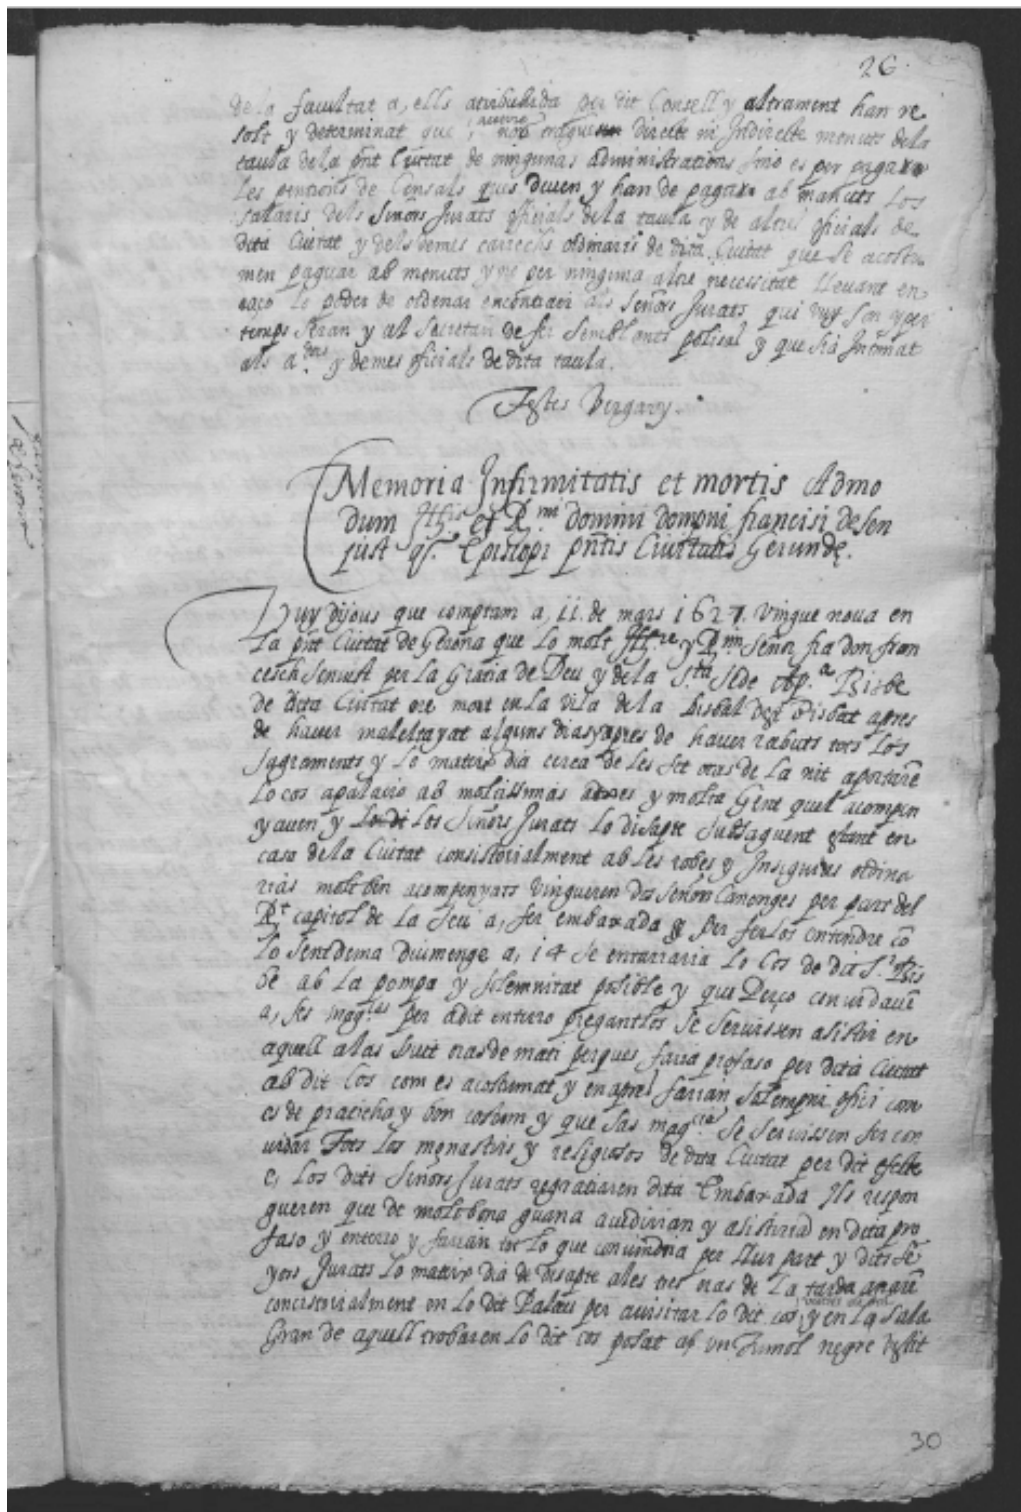 26.
de la facultat a, ells atribuhida per dit Consell y altrament han re
solt y determinat que, no traguen directe ni Indirecte menuts dela
taula dela pnt Ciutat de ningunas administrations sino es per pagar
Les pentions de Censals ques deuen y han de pagar ab menuts Los
salaris dels Sinors Jurats officials dela taula y de altres oficials de
dita Ciutat y dels demes carrechs ordinaris de dita Ciutat que se acostu
men paguar ab menuts y no per ninguna altre necessitat llevant en
raço lo poder de ordenar encontrari als señors Jurats qui vuy son y per
temps seran y al secretari de fer semblants polisas y que sia Intimat
als a. y demes oficials de dita taula.
Testes Verguers.
Memoria Infirmitatis et mortis Admo
dum Illis et Rmi domini dompni francisi de sen
just qº. Episcopi pntis Civitatis Gerundę.
Vuy dijous que comptam a, 11. de mars 1627. vingue nova en
La pnt Ciutat de Gerona que lo molt Illre y Rmi Señor fra don fran
cesch Senjust per La Gratia de Deu y dela Sta Sede Ap.ª Bisbe
de dita Ciutat ere mort en La vila dela bisbal del Bisbat apres
de haver malaltejat alguns dias y apres de haver rabuts tots los
sagraments y lo mateix dia cerca de les set oras de La nit aportarē
lo cos a palacio ab moltissimas atxes y molta Gent quel acompan
yaven y Lo di Los Sinors Jurats Lo disapte subseguent estant en
casa dela Ciutat consistorialment ab Les robes y Insignias ordina
rias molt ben acompanyats vingueren dos señors Canonges per part del
Rt capitol de La Seu a, fer embaxada y per ferlos entendre cō
lo sendema diumenge a, 14 se enterraria lo Cos de dit Sr Bis
be ab La pompa y solemnitat posible y que Perço convidavē
a, ses mag.cias per adit enterro pregantlos se servissen asistir en
aquell a las vuit oras de mati perques faria profaso per dita Ciutat
ab dit Cos com es acostumat y en apres farian solempni ofici com
es de praticha y bon costum y que sas mag.cias se servissen fer con
vidar Tots los monastirs y religiosos de dita Ciutat per dit efecte
e, Los dits Sinors Jurats regratiaren dita Embaxada Ils respon
gueren que de molt bona guana acudirian y asistirian en dita pro
faso y enterro y farian tot lo que convindria per llur part y dits Se
yors Jurats lo mateix dia de disapte ales tres oras de La tarda anarē
concistorialment en lo dit Palau per avisitar lo dit cos y en La sala
Gran de aquell trobaren lo dit cos posat ab vn Tumol negre vestit
30